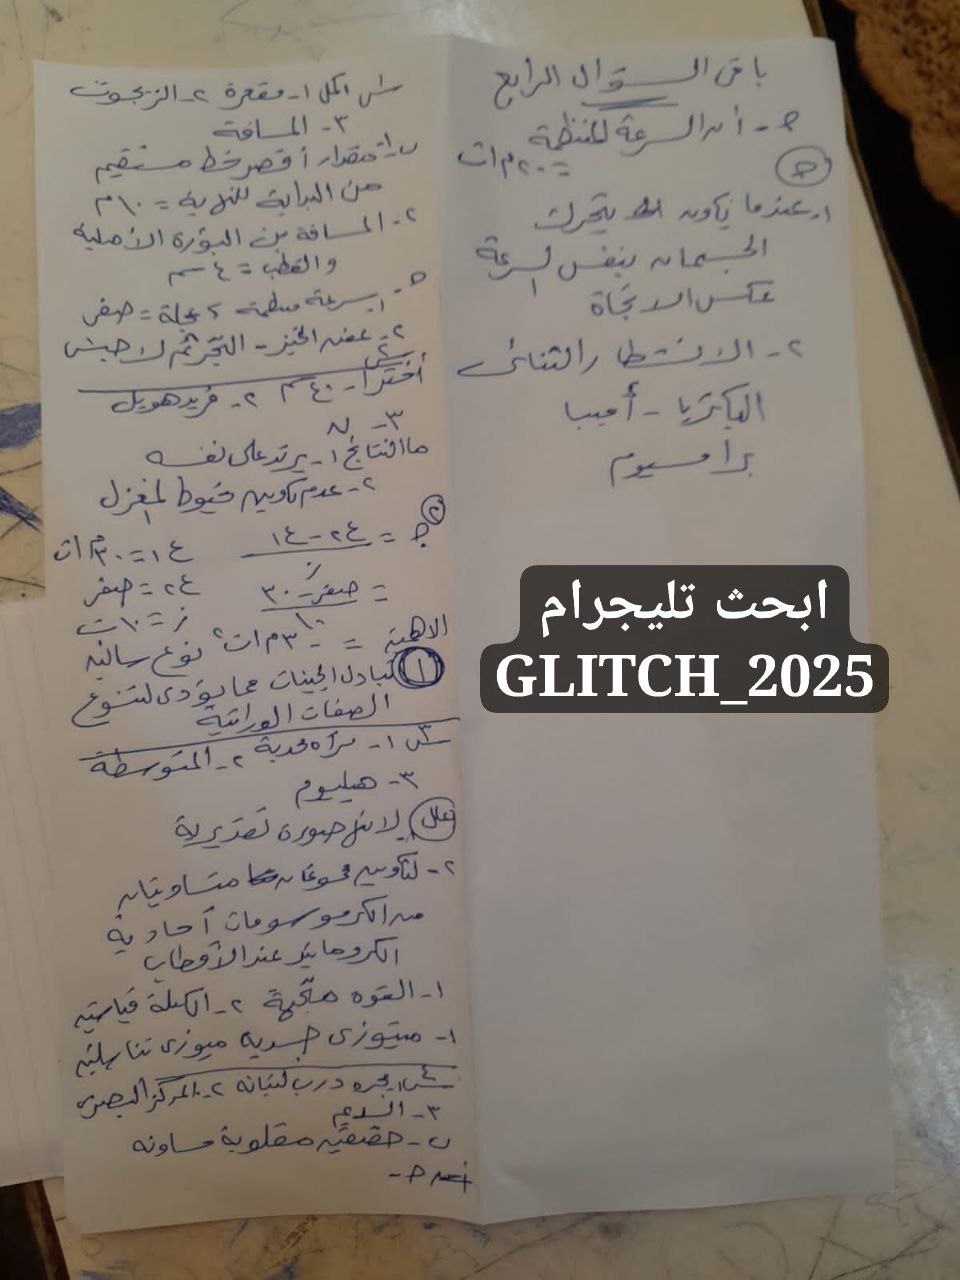 باقى السؤال الرابع
ج- أن السرعة المنتظمة
= ٢٠ م/ث
ج
١- عندما يكون يتحرك
الجسمان بنفس السرعة
عكس الاتجاة
٢- الانشطار الثنائى
البكتريا - أميبا
براميسيوم
س١ اكمل ١- مقعرة ٢- الزيجوت
٣- المسافة
ب ١- مقدار أقصر خط مستقيم
من البداية للنهاية = ١٠ م
٢- المسافة بين البؤرة الأصلية
والقطب = ٤ سم
ج- ١- سرعة منتظمة ، عجلة = صفر
٢- عفن الخبز - التجرثم لاجنسى
س٢
أختر ١- ٤٠ سم ٢- فريد هويل
٣- ن
ما النتائج ١- يرتد على نفسه
٢- عدم تكوين خيوط المغزل
٢
ج = ع٢ - ع١ / ز
ع١ = ٣٠ م/ث
= صفر - ٣٠ / ١٠
ع٢ = صفر
ز = ١٠ ث
= -٣ م/ث٢ نوع سالبة
الاهمية
١ تبادل الجينات مما يؤدى لتنوع
الصفات الوراثية
س٣ ١- مرآه محدبة ٢- المتوسطة
٣- هيليوم
علل ١- لانها صورة تقديرية
٢- لتكوين مجموعتان متساويتان
من الكرموسومات أحادية
الكروماتيد عند الأقطاب
١- القوه متجهة ٢- الكتلة قياسية
١- ميتوزى جسديه ميوزى تناسليه
س٤ ١- مجره درب التبانه ٢- المركز البصرى
٣- السديم
ب- حقيقيه مقلوبة مساويه
ج-
ابحث تليجرام
GLITCH_2025